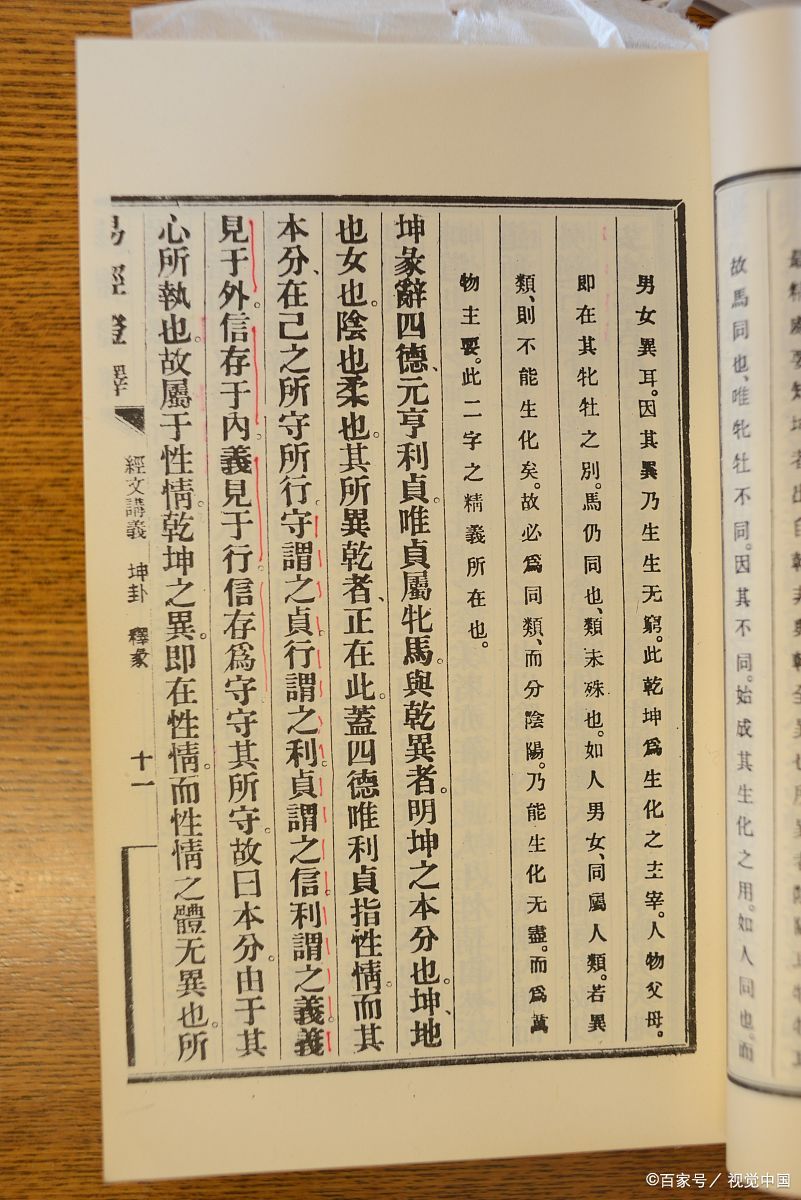 故馬同也、唯牝牡不同。因其不同。始成其生化之用。如人同也。而
男女異耳。因其異乃生生无窮。此乾坤為生化之主宰。人物父母。
即在其牝牡之別。馬仍同也、類未殊也。如人男女、同屬人類。若異
類、則不能生化矣。故必為同類、而分陰陽。乃能生化无盡。而為萬
物主要。此二字之精義所在也。
坤彖辭四德、元亨利貞。唯貞屬牝馬。與乾異者。明坤之本分也。坤、地
也女也。陰也柔也。其所異乾者、正在此。蓋四德唯利貞指性情。而其
本分、在己之所守所行。守謂之貞。行謂之利。貞謂之信。利謂之義。義
見于外。信存于內。義見于行。信存為守。守其所守。故曰本分。由于其
心所執也。故屬于性情。乾坤之異。即在性情。而性情之體无異也。所
易經證釋
經文講義 坤卦 釋彖
十一
©百家号／視覚中国